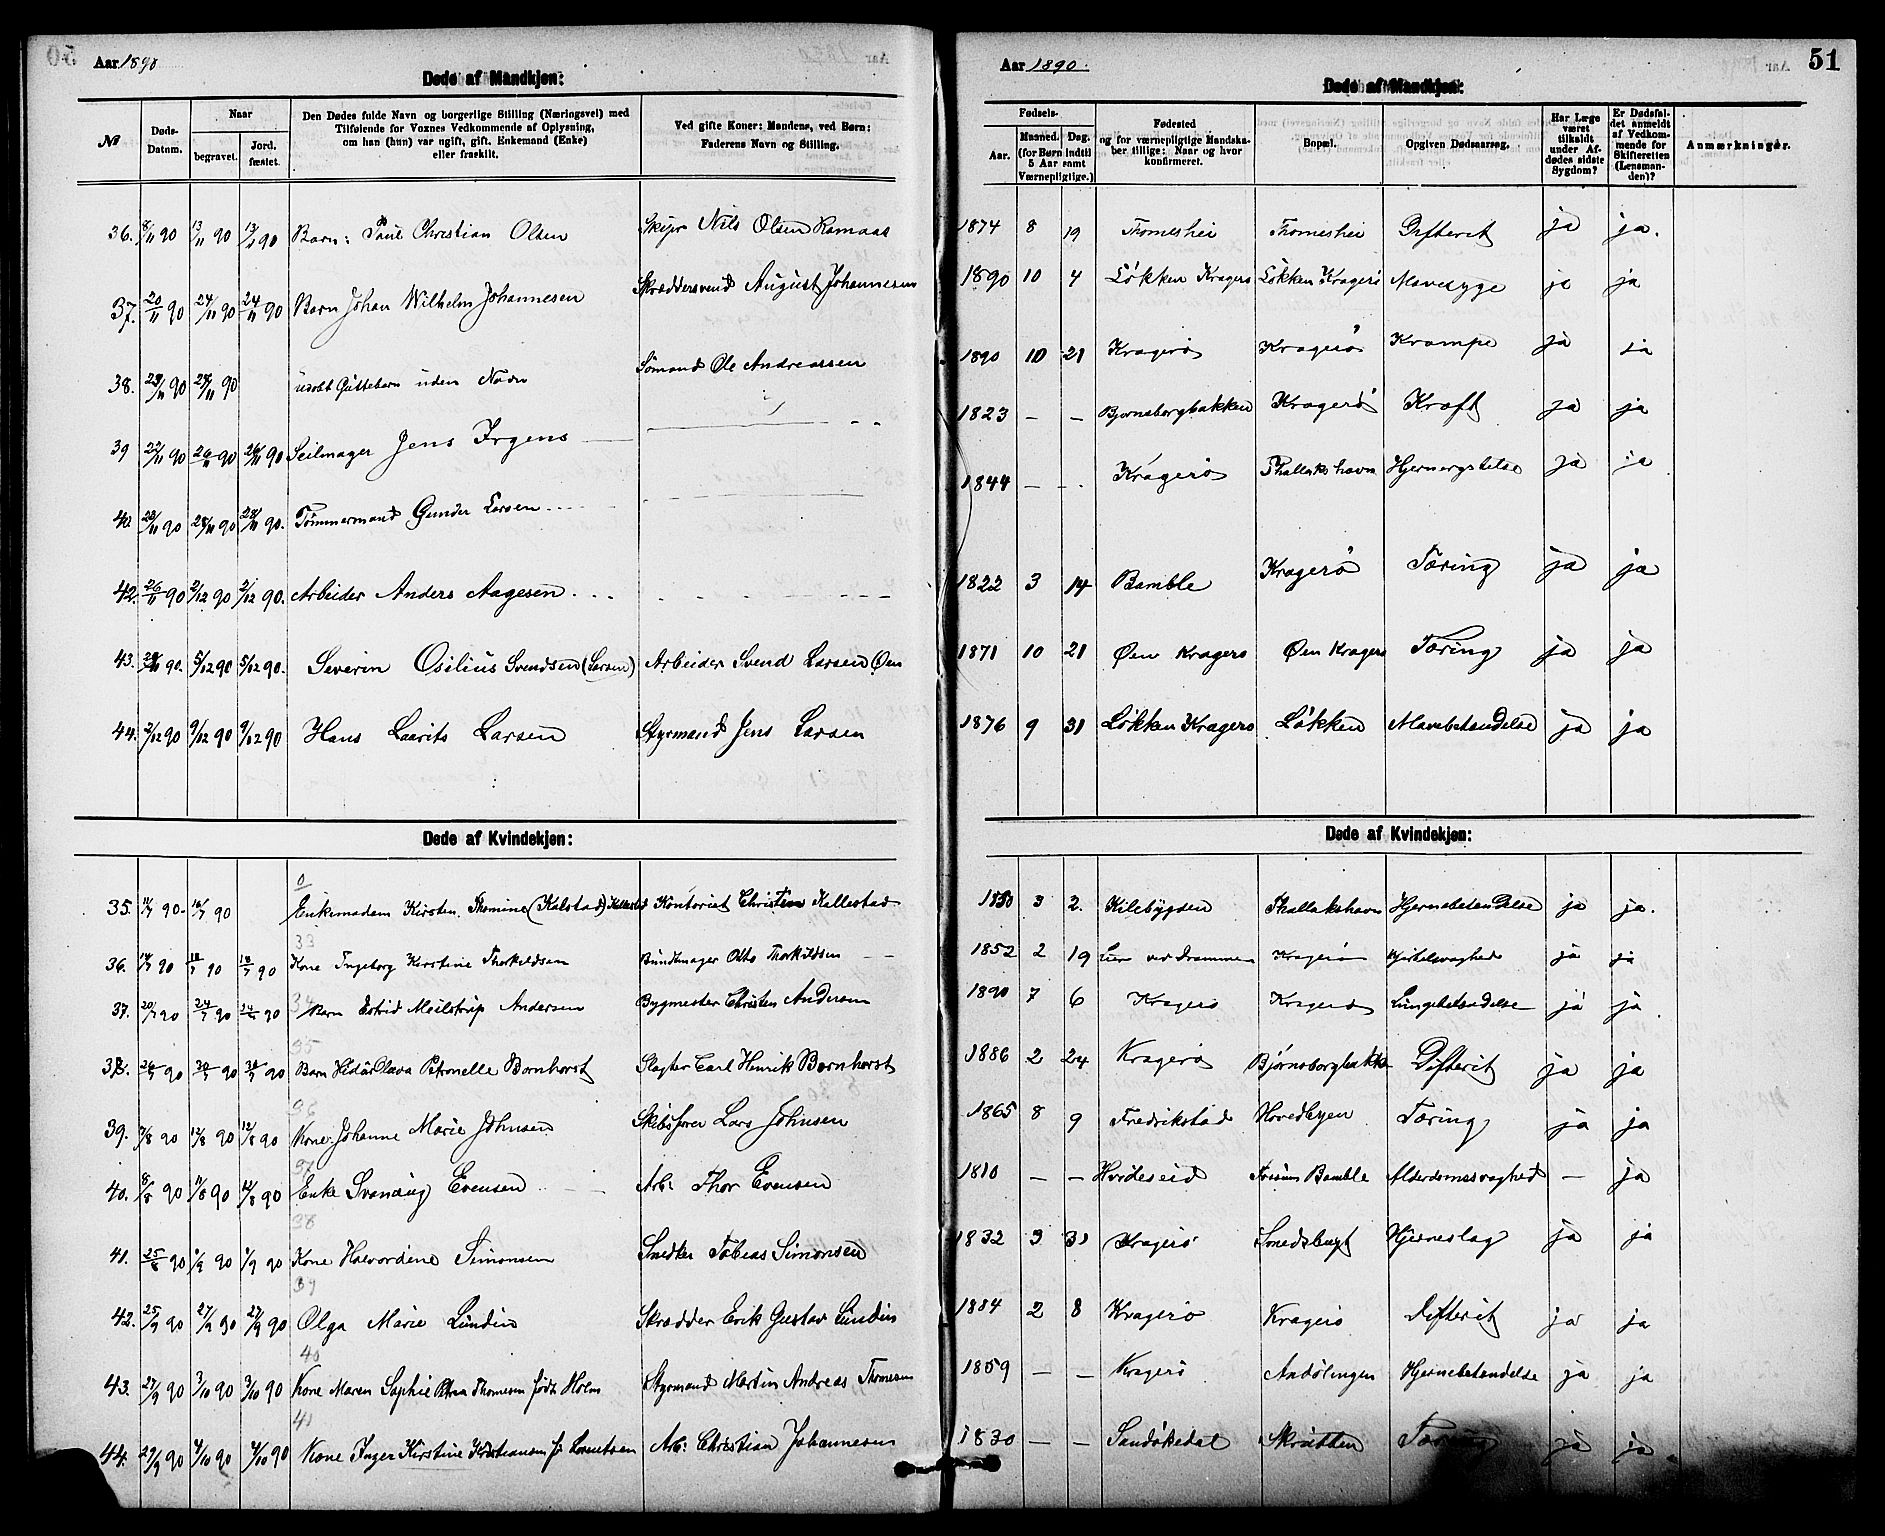 Aar 1890
Døde af Mandkjøn:
№
Døds-Datum.
Naar
begravet.
Jordfæstet.
Den Dødes fulde Navn og borgerlige Stilling (Næringsvei) med
Tilføiende for Voxnes Vedkommende af Oplysning,
om han (hun) var ugift, gift, Enkemand (Enke)
eller fraskilt.
Ved gifte Koner: Mandens, ved Børn:
Faderens Navn og Stilling.
36. 8/11 90 13/11 90 13/11 90 Barn: Paul Christian Olsen Skipr Nils Olsen Ramaas
37. 20/11 90 24/11 90 24/11 90 Barn Johan Wilhelm Johannesen Skræddersvend August Johannesen
38. 90 90 udøbt Guttebarn uden Navn Sømand Ole Andreassen
39 22/11 90 26/11 90 26/11 90 Seilmager Jens Irgens
90 28/11 90 28/11 90. Tømmermand Gunder Larsen
42. 26/11 90 2/12 90 2/12 90. Arbeider Anders Aagesen
43. 90. 5/12 90 5/12 90. Severin Osilius Svendsen (Larsen) Arbeider Svend Larsen Øen
44. 2/12 90 9/12 90 9/12 90 Hans Laurits Larsen Styrmand Jens Larsen
Døde af Kvindekjøn:
0
35. 11/7 90. 16/7 90 Enkemadam Kirsten Thomine (Kalstad) Kallestad Kontorist Christen Kallestad
33
36. 14/7 90 18/7 90 18/7 90 Kone Ingeborg Kirstine Thorkildsen Bundtmager Otto Thorkildsen
34
37. 20/7 90 24/7 90 24/7 90 Barn Estrid Meilstrup Andersen Bygmester Christen Andersen
35
38. 26/7 90 30/7 90 30/7 90 Barn Olava Petronelle Bornhorst Slagter Carl Henrik Bornhorst
36
39. 7/8 90 12/8 90 12/8 90 Kone Johanne Marie Johnsen Skibsfører Lars Johnsen
37
40. 8/8 90 11/8 90 11/8 90 Enke Svanaug Evensen Arb: Thor Evensen
38
41. 25/8 90 1/9 90 1/9 90 Kone Halvordine Simonsen Snedker Tobias Simonsen
39
42. 25/9 90 27/9 90 27/9 90 Olga Marie Lundin Skrædder Erik Gustav Lundin
40
43. 27/9 90 3/10 90 3/10 90 Kone Maren Sophie Thomesen født Holm Styrmand Martin Andreas Thomesen
41
44. 29/9 90 4/10 90 4/10 90 Kone Inger Kirstine Kristiansen f. Lorentsen Arb: Christian Johannesen
Aar 1890.
51
Døde af Mandkjøn:
Fødsels-
Aar.
Maaned. Dag.
(for Børn indtil
5 Aar samt
Værnepligtige.)
Fødested
og for værnepligtige Mandska-
ber tillige: Naar og hvor
konfirmeret.
Bopæl.
Opgiven Dødsaarsag.
Har Læge
været
tilkaldt
under Af-
dødes sidste
Sygdom?
Er Dødsfal-
det anmeldt
af Vedkom-
mende for
Skifteretten
(Lensman-
den)?
Anmærkninger.
1874 8 19 Thomeshei Thomeshei Difterit ja ja.
1890 10 4 Løkken Kragerø Løkken Kragerø Mavesyge ja ja
1890 10 21 Kragerø Kragerø Krampe ja ja
1823 — — Bjørnsborgbakken Kragerø Kræft ja ja
1844 — — Kragerø Thallakshavn Hjernerystelse ja ja
1822 3 14 Bamble Kragerø Tæring ja ja
1871 10 21 Øen Kragerø Øen Kragerø Tæring ja ja
1876 9 31 Løkken Kragerø Løkken Mavebetændelse ja ja
Døde af Kvindekjøn:
1830 3 2. Kilebygden Thallakshavn Hjernebetændelse ja ja.
1852 2 19 Lier ved Drammen Kragerø Kjertelsvaghed ja ja
1890 7 6 Kragerø Kragerø Lungebetændelse ja ja
1886 2 24 Kragerø Bjørnsborgbakke Difterit ja ja
1865 8 9 Fredrikstad Hovedbyen Tæring ja ja
1810 — — Hvideseid Bamble Alderdomssvaghed — ja
1832 3 31 Kragerø Smedsbugt Hjerneslag ja ja
1884 2 8 Kragerø Kragerø Difterit ja ja
1859 — — Kragerø Andølingen Hjernebetændelse ja ja
1830 — — Sandøkedal Skrubben Tæring ja ja